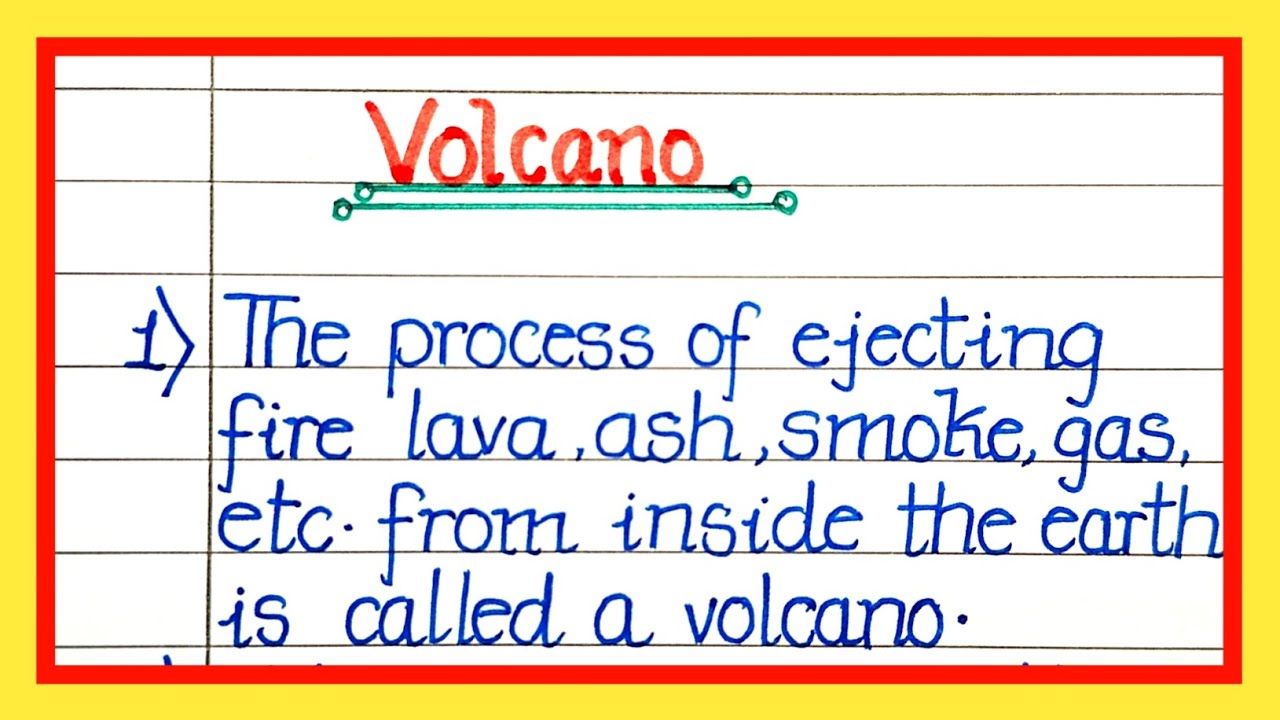 Volcano
1) The process of ejecting
fire lava, ash, smoke, gas,
etc. from inside the earth
is called a volcano.